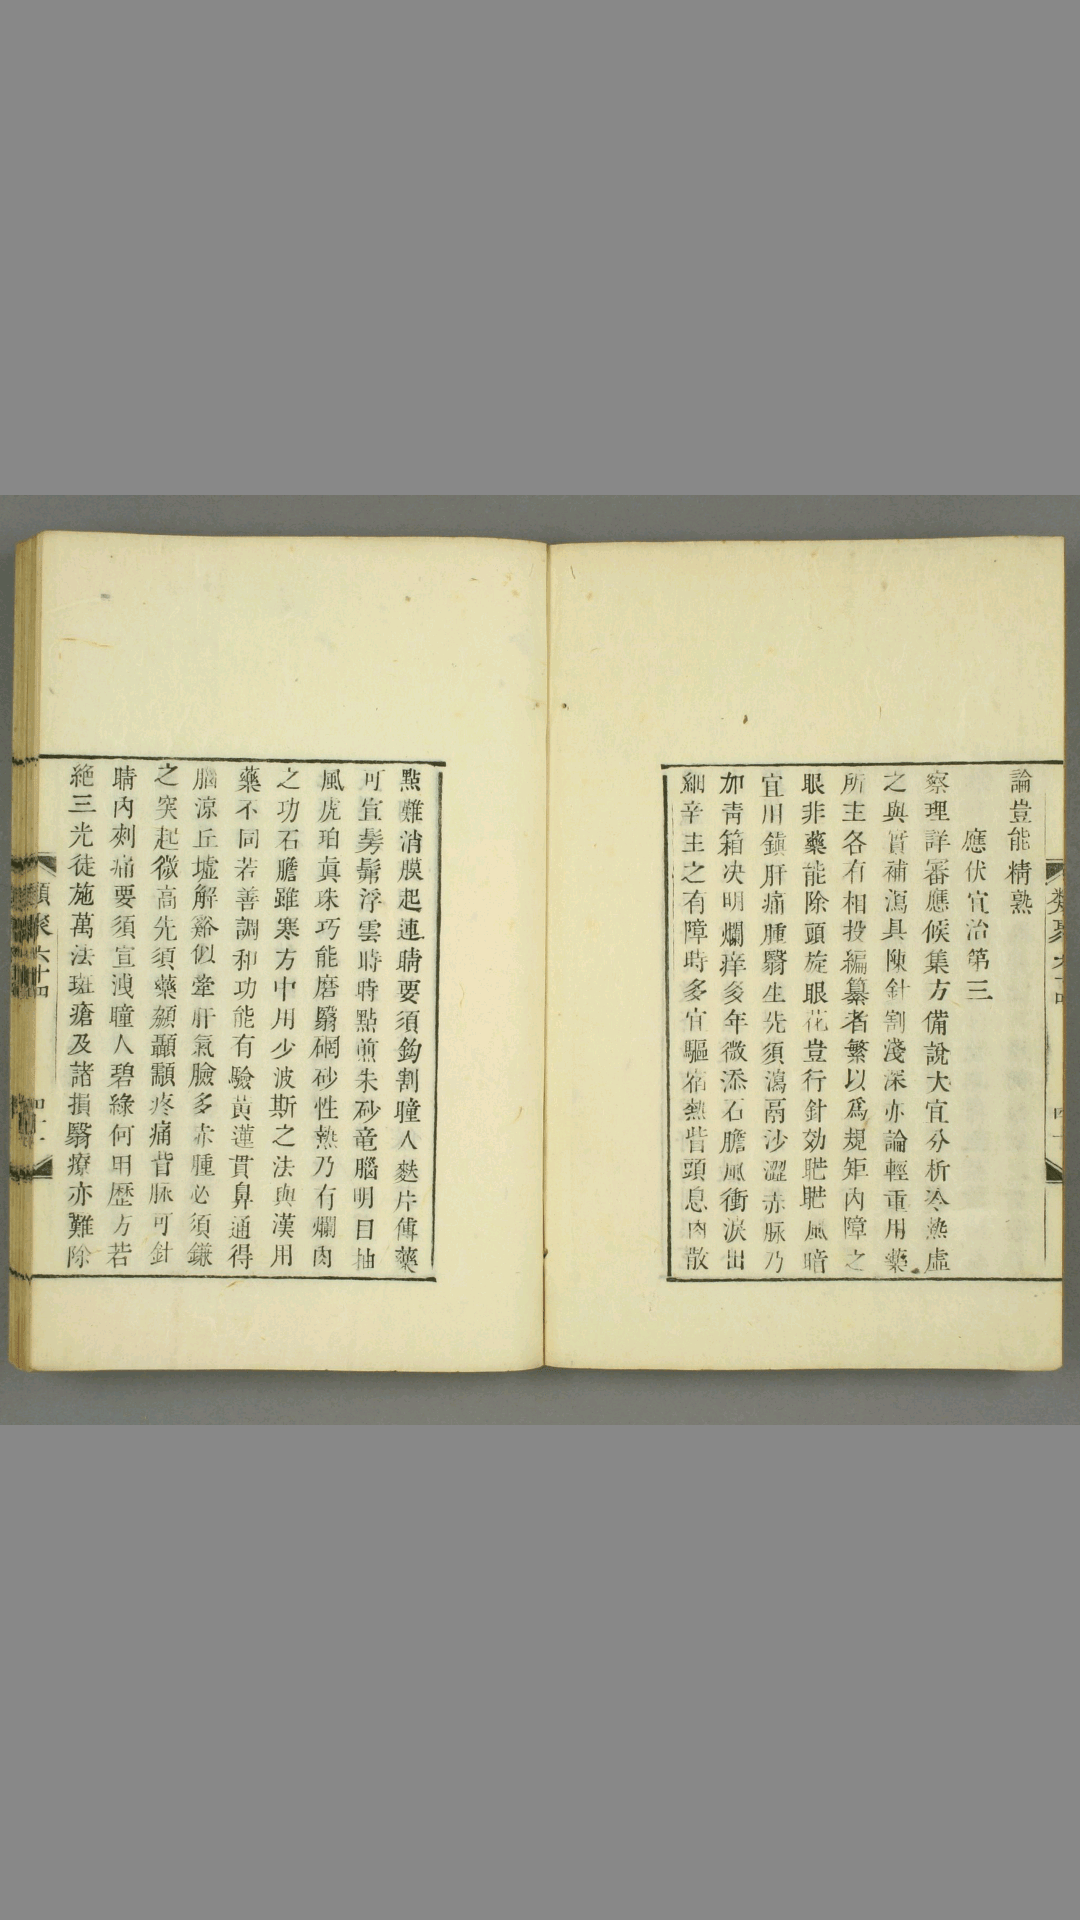 論豈能精熟
應伏宜治第三
察理詳審應候集方備說大宜分析冷熱虛
之與實補瀉具陳針割淺深亦論輕重用藥
所主各有相投編纂者繁以爲規矩內障之
眼非藥能除頭旋眼花豈行針効𥆨𥆨風暗
宜用鎮肝痛腫翳生先須瀉鬲沙澀赤脉乃
加青箱决明爛痒多年微添石膽風衝淚出
細辛主之有障時多宜驅宿熱眥頭息肉散
點難消膜起連睛要須鈎割瞳人麩片傅藥
可宜髣髴浮雲時時點煎朱砂竜腦明目抽
風虎珀眞珠巧能磨翳硇砂性熱乃有爛肉
之功石膽雖寒方中用少波斯之法與漢用
藥不同若善調和功能有驗黃蓮貫鼻通得
腦涼丘墟解谿似牽肝氣臉多赤腫必須鎌
之突起微高先須藥顙顳顬疼痛背脉可針
睛內刺痛要須宣洩瞳人碧綠何用歷方若
絶三光徒施萬法斑瘡及諸損翳療亦難除
類聚六十四